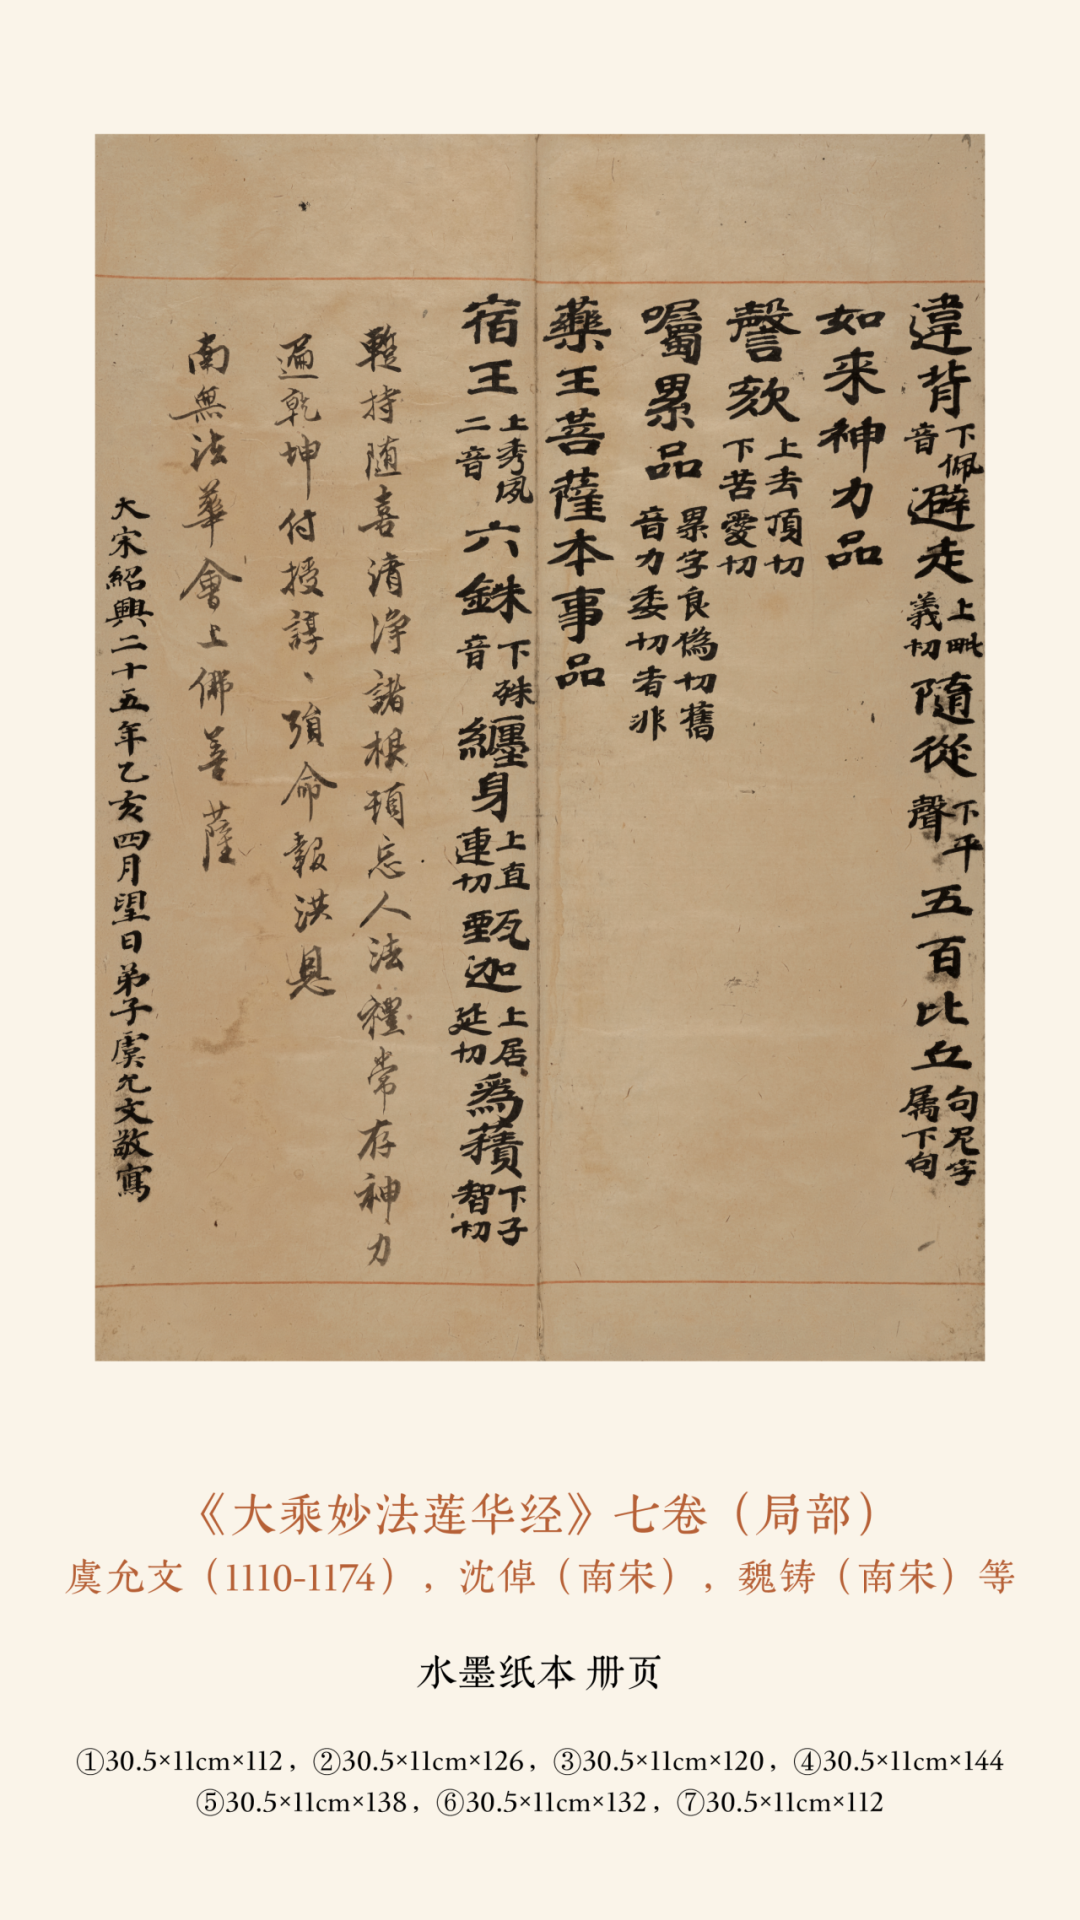 違背下佩音避走上毗義切隨從下平聲五百比丘句尼字屬下句
如来神力品
謦欬上去頂切下苦愛切
囑累品累字良偽切舊音力委切者非
藥王菩薩本事品
宿王上秀夙二音六銖下殊音纏身上直連切甄迦上居延切為積下子智切
持随喜清淨諸根頓忘人法禮常存神力
遍乾坤付授諄、須命報洪恩
南無法華會上佛菩薩
大宋紹興二十五年乙亥四月望日弟子虞允文敬寫
《大乘妙法莲华经》七卷（局部）
虞允文（1110-1174），沈倬（南宋），魏铸（南宋）等
水墨纸本 册页
①30.5×11cm×112，②30.5×11cm×126，③30.5×11cm×120，④30.5×11cm×144
⑤30.5×11cm×138，⑥30.5×11cm×132，⑦30.5×11cm×112